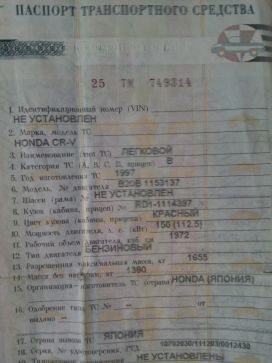 ПАСПОРТ ТРАНСПОРТНОГО СРЕДСТВА
25 ТМ 749314
1. Идентификационный номер (VIN)
НЕ УСТАНОВЛЕН
2. Марка, модель ТС
HONDA CR-V
3. Наименование (тип ТС) ЛЕГКОВОЙ
4. Категория ТС (A, B, C, D, прицеп) B
5. Год изготовления ТС 1997
6. Модель, № двигателя B20B 1153137
7. Шасси (рама) № НЕ УСТАНОВЛЕН
8. Кузов (кабина, прицеп) № RD1-1114397
9. Цвет кузова (кабины, прицепа) КРАСНЫЙ
10. Мощность двигателя, л. с. (кВт) 150 (112.5)
11. Рабочий объем двигателя, куб. см 1972
12. Тип двигателя БЕНЗИНОВЫЙ
13. Разрешенная максимальная масса, кг 1655
14. Масса без нагрузки, кг 1380
15. Организация-изготовитель ТС (страна) HONDA (ЯПОНИЯ)
16. Одобрение типа ТС № –
выдано –
17. Страна вывоза ТС ЯПОНИЯ
18. Серия, № ТД, 10702030/111203/0012430
19. Таможенные НЕ УСТАНОВЛЕНЫ